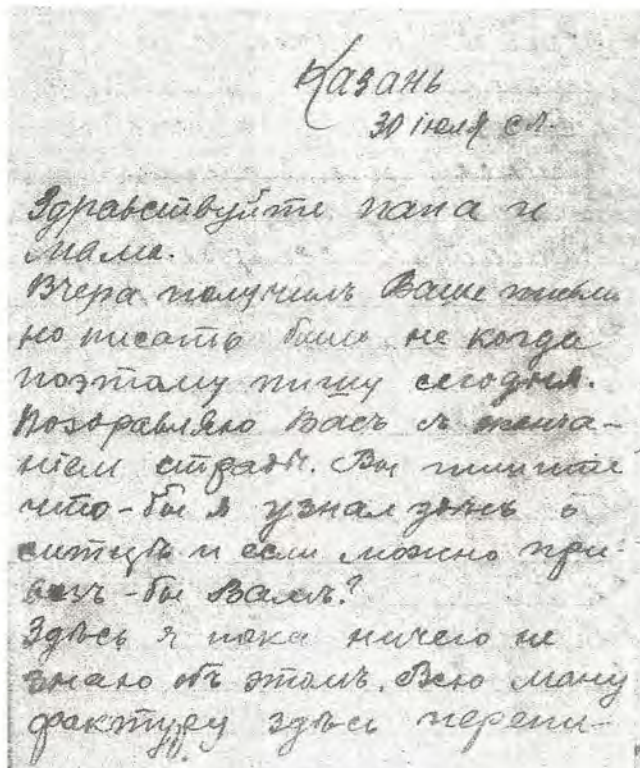 Казань
30 іюля с.г.
Здравствуйте папа и
мама.
Вчера получилъ Ваше письмо
но писать было не когда
поэтому пишу сегодня.
Поздравляю Васъ съ
нiем страды. Вы пишите
что-бы я узнал здѣсь о
ситцѣ и если можно при-
везъ-бы Вамъ?
Здѣсь я пока ничего не
знаю объ этомъ. Всю ману
фактуру здѣсь перепи-